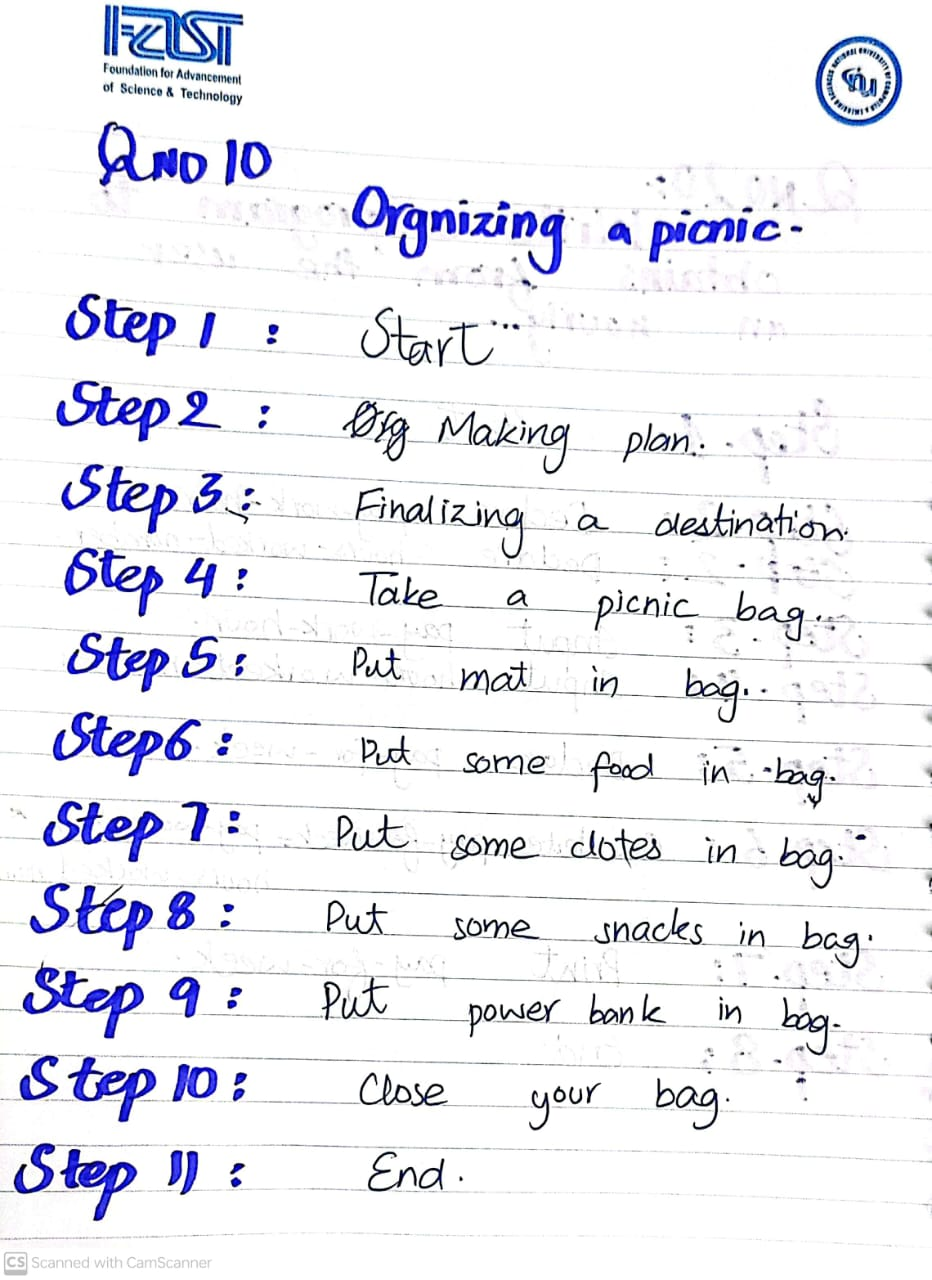 FAST
Foundation for Advancement
of Science & Technology
QNO 10
Orgnizing a picnic-
Step 1 : Start
Step 2 : Org Making plan.
Step 3 : Finalizing a destination.
Step 4 : Take a picnic bag.
Step 5 : Put mat in bag.
Step 6 : Put some food in bag.
Step 7 : Put some clotes in bag.
Step 8 : Put some snacks in bag.
Step 9 : Put power bank in bag.
Step 10 : Close your bag.
Step 11 : End.
CS Scanned with CamScanner